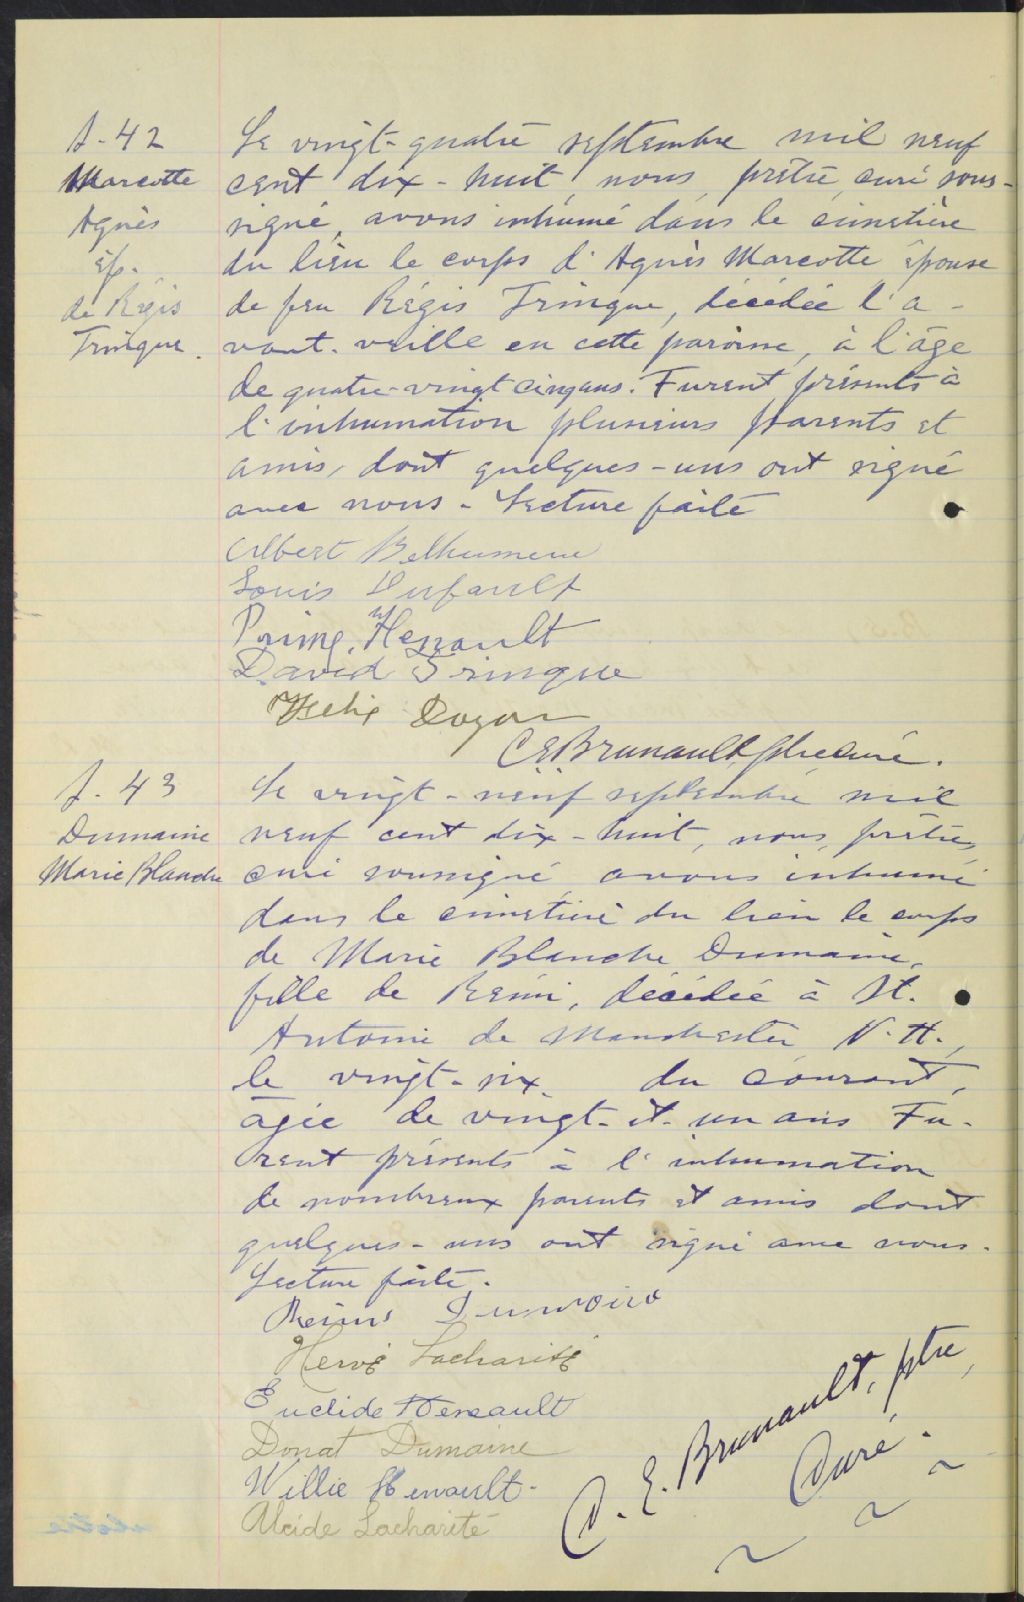 S-42
Marcotte
Agnès
ép.
de Régis
Tringue.
Le vingt-quatre septembre mil neuf
cent dix-huit nous, prêtre curé sous-
signé, avons inhumé dans le cimetière
du lieu le corps d'Agnès Marcotte épouse
de feu Régis Tringue, décédée l'a-
vant-veille en cette paroisse, à l'âge
de quatre-vingt cinq ans. Furent présents à
l'inhumation plusieurs parents et
amis, dont quelques-uns ont signé
avec nous - Lecture faite
Albert Belhumeur
Louis Dufault
Prime. Henault
David Tringue
Felix Dozois
C E Brunault ptre curé.
S-43
Dumaine
Marie Blanche
Le vingt-neuf septembre mil
neuf cent dix-huit, nous, prêtre,
curé soussigné, avons inhumé
dans le cimetière du lieu le corps
de Marie Blanche Dumaine,
fille de Rémi, décédée à St.
Antoine de Manchester N.H.,
le vingt-six du courant,
âgée de vingt-et-un ans Fu-
rent présents à l'inhumation
de nombreux parents et amis dont
quelques-uns ont signé avec nous.
Lecture faite.
Hervé Lacharité
Euclide Heneault
Donat Dumaine
Willie Henault.
Alcide Lacharité
C. E. Brunault, ptre,
Curé.